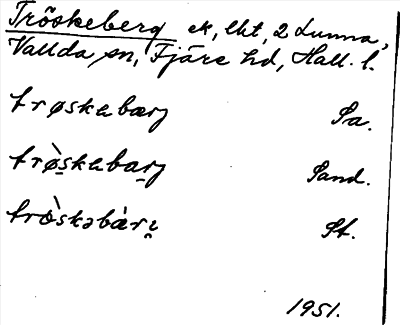 Tröskeberg ek, lht, 2 Lunna,
Vallda sn, Fjäre hd, Hall. l.
trøskebærj Sa.
trø̀skebarj Sand.
trø̀skəbàrj St.
1951.